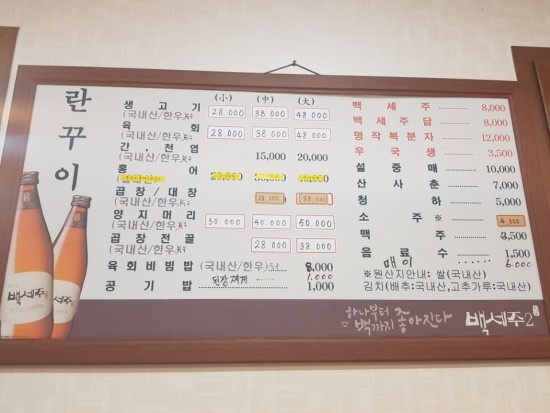 란꾸이
(小) (中) (大)
생고기
(국내산/한우) 28.000 38.000 48.000
육회
(국내산/한우) 28.000 38.000 48.000
간,천엽
(국내산/한우) 15,000 20,000
홍어
곱창/대창
(국내산/한우) 28.000 38.000
양지머리
(국내산/한우) 30.000 40.000 50.000
곱창전골
(국내산/한우) 28.000 38.000
육회비빔밥 (국내산/한우) 8,000
된장찌개 1.000
공기밥 1,000
백세주 8,000
백세주담 8,000
명작복분자 12,000
우국생 3,500
설중매 10,000
산사춘 7,000
청하 5,000
소주※ 4.000
맥주 3,500
음료수 1,500
매이 6.000
※원산지안내:쌀(국내산)
김치(배추:국내산,고추가루:국내산)
백세주
하나부터
백까지 좋아진다
백세주2